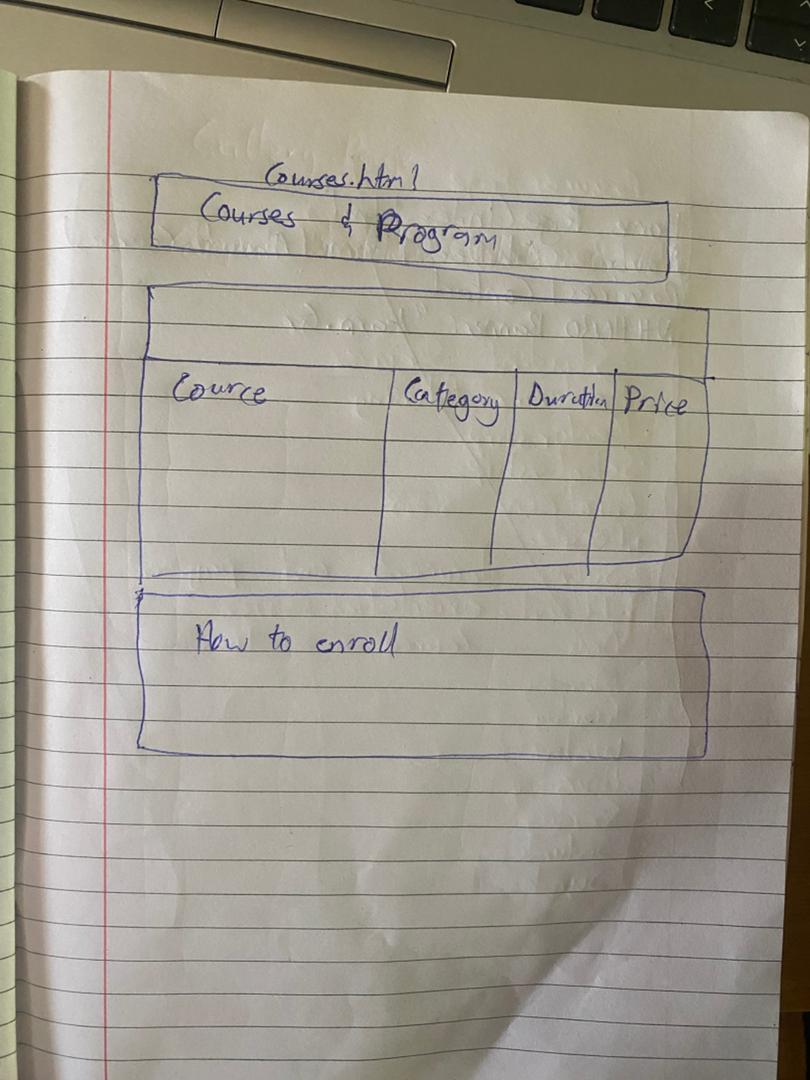 Courses.html
Courses & Program
Cource Category Duration Price
How to enroll